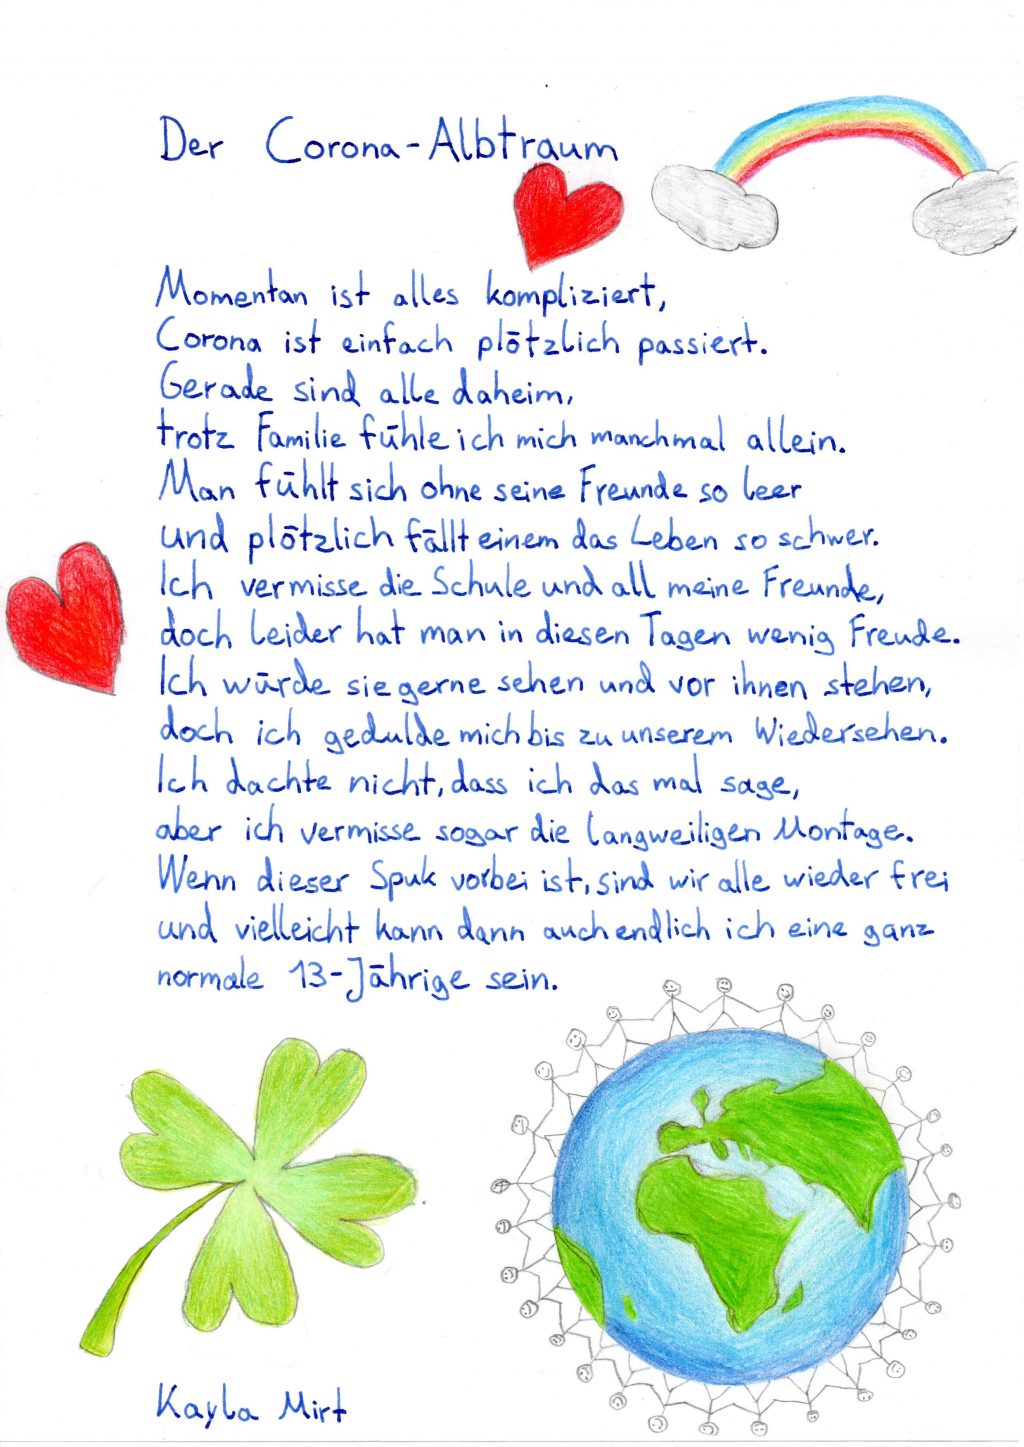 Der Corona-Albtraum
Momentan ist alles kompliziert,
Corona ist einfach plötzlich passiert.
Gerade sind alle daheim,
trotz Familie fühle ich mich manchmal allein.
Man fühlt sich ohne seine Freunde so leer
und plötzlich fällt einem das Leben so schwer.
Ich vermisse die Schule und all meine Freunde,
doch leider hat man in diesen Tagen wenig Freude.
Ich würde sie gerne sehen und vor ihnen stehen,
doch ich gedulde mich bis zu unserem Wiedersehen.
Ich dachte nicht, dass ich das mal sage,
aber ich vermisse sogar die langweiligen Montage.
Wenn dieser Spuk vorbei ist, sind wir alle wieder frei
und vielleicht kann dann auch endlich ich eine ganz
normale 13-Jährige sein.
Kayla Mirt